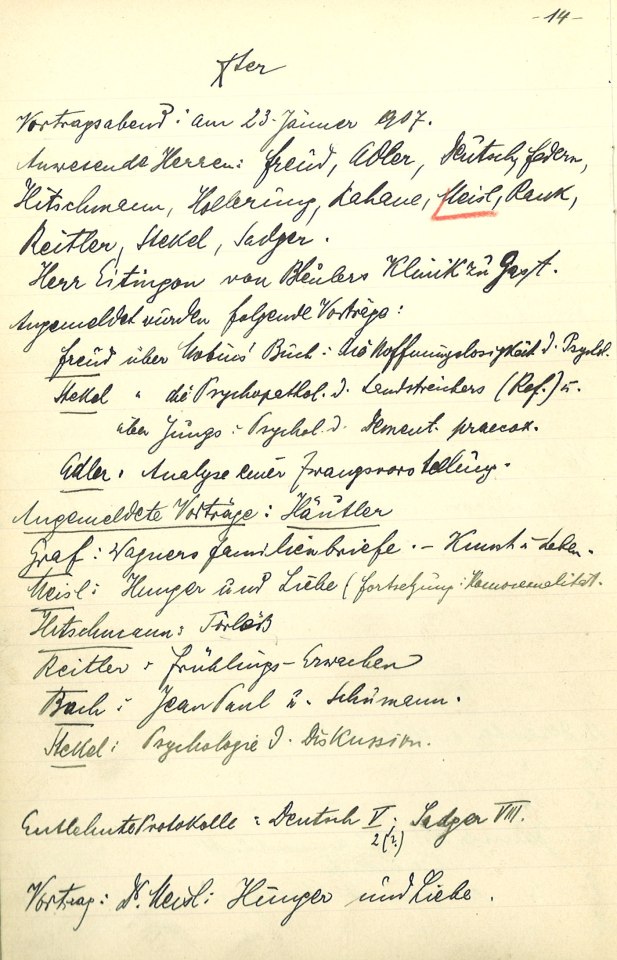 - 14 -
Xter
Vortragsabend: am 23. Jänner 1907.
Anwesende Herren: Freud, Adler, Deutsch, Federn,
Hitschmann, Hollerung, Kahane, Meisl, Rank,
Reitler, Stekel, Sadger.
Herr Eitingon von Bleulers Klinik zu Gast.
Angemeldet wurden folgende Vorträge:
Freud über Möbius' Buch: die Hoffnungslosigkeit d. Psychol.
Stekel " die Psychopathol. d. Landstreichers (Ref.) u.
über Jungs: Psychol. d. Dement. praecox.
Adler: Analyse einer Zwangsvorstellung.
Angemeldete Vorträge: Häutler
Graf: Wagners Familienbriefe. - Kunst u. Leben.
Meisl: Hunger und Liebe (Fortsetzung: Homosexualität.
Hitschmann: Törleß
Reitler: Frühlings-Erwachen
Bach: Jean Paul u. Schumann.
Stekel: Psychologie d. Diskussion.
Entlehnte Protokolle: Deutsch V; Sadger VIII.
2 (?)
Vortrag: Dr. Meisl: Hunger und Liebe.